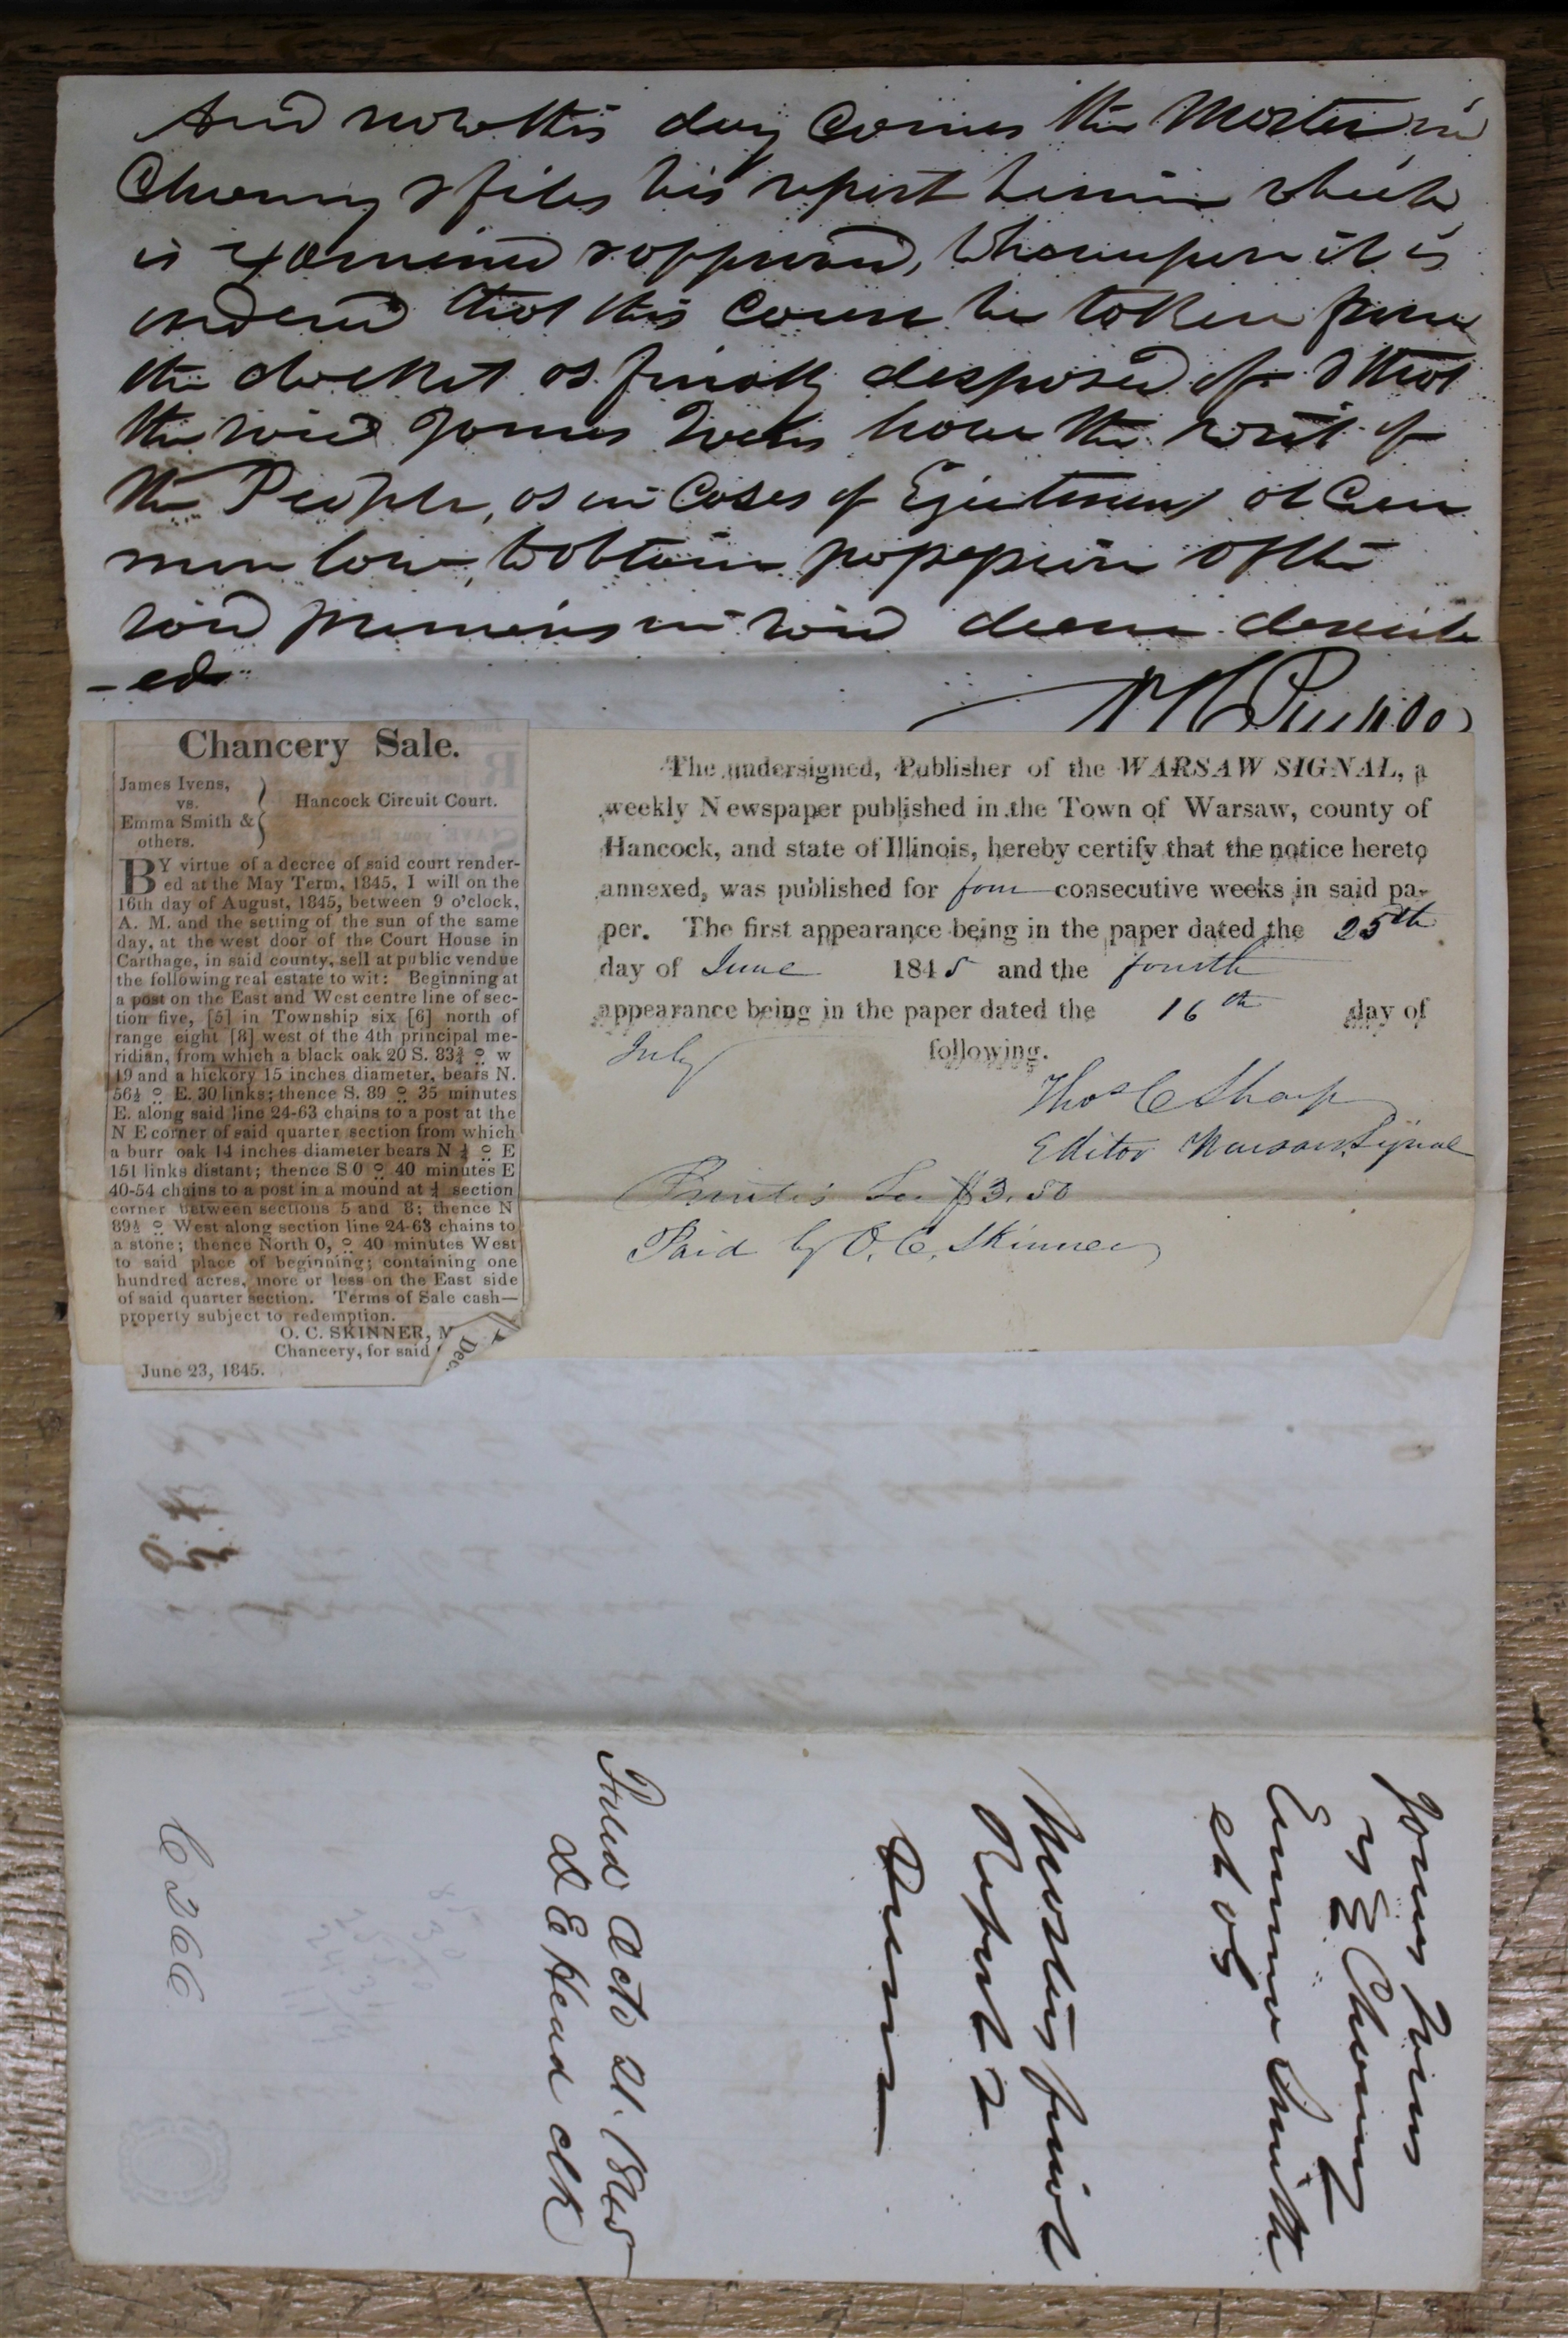 And now this day comes the Master in
Chancery & files his report herein which
is examined & approved, Whereupon it is
ordered that this cause be taken from
the docket as finally disposed of & that
the said James Ivens have the writ of
the People, as in Cases of Ejectment at Com
mon law, to obtain possession of the
said premises in said decree describ
-ed
Chancery Sale.
James Ivens,
vs.
Emma Smith &
others.
Hancock Circuit Court.
BY virtue of a decree of said court render-
ed at the May Term, 1845, I will on the
16th day of August, 1845, between 9 o'clock,
A. M. and the setting of the sun of the same
day, at the west door of the Court House in
Carthage, in said county, sell at public vendue
the following real estate to wit: Beginning at
a post on the East and West centre line of sec-
tion five, [5] in Township six [6] north of
range eight [8] west of the 4th principal me-
ridian, from which a black oak 20 S. 83¾ º w
19 and a hickory 15 inches diameter, bears N.
56½ º E. 30 links; thence S. 89 º 35 minutes
E. along said line 24-63 chains to a post at the
N E corner of said quarter section from which
a burr oak 14 inches diameter bears N º E
151 links distant; thence S 0 º 40 minutes E
40-54 chains to a post in a mound at ¼ section
corner between sections 5 and 8; thence N
89½ º West along section line 24-63 chains to
a stone; thence North 0, º 40 minutes West
to said place of beginning; containing one
hundred acres, more or less on the East side
of said quarter section. Terms of Sale cash—
property subject to redemption.
O. C. SKINNER, M
Chancery, for said
Dec.
June 23, 1845.
The undersigned, Publisher of the WARSAW SIGNAL, a
weekly Newspaper published in the Town of Warsaw, county of
Hancock, and state of Illinois, hereby certify that the notice hereto
annexed, was published for four consecutive weeks in said pa-
per. The first appearance being in the paper dated the 25th
day of June 1845 and the fourth
appearance being in the paper dated the 16th day of
July following.
Thos C Sharp
Editor Warsaw Signal
Printer's fee $3.50
Paid by O. C. Skinner
James Ivens
vs Chancery
Emma Smith
et al
Masters final
Report &
Decree
Filed Octo 21. 1845
D E Head clk
C 266